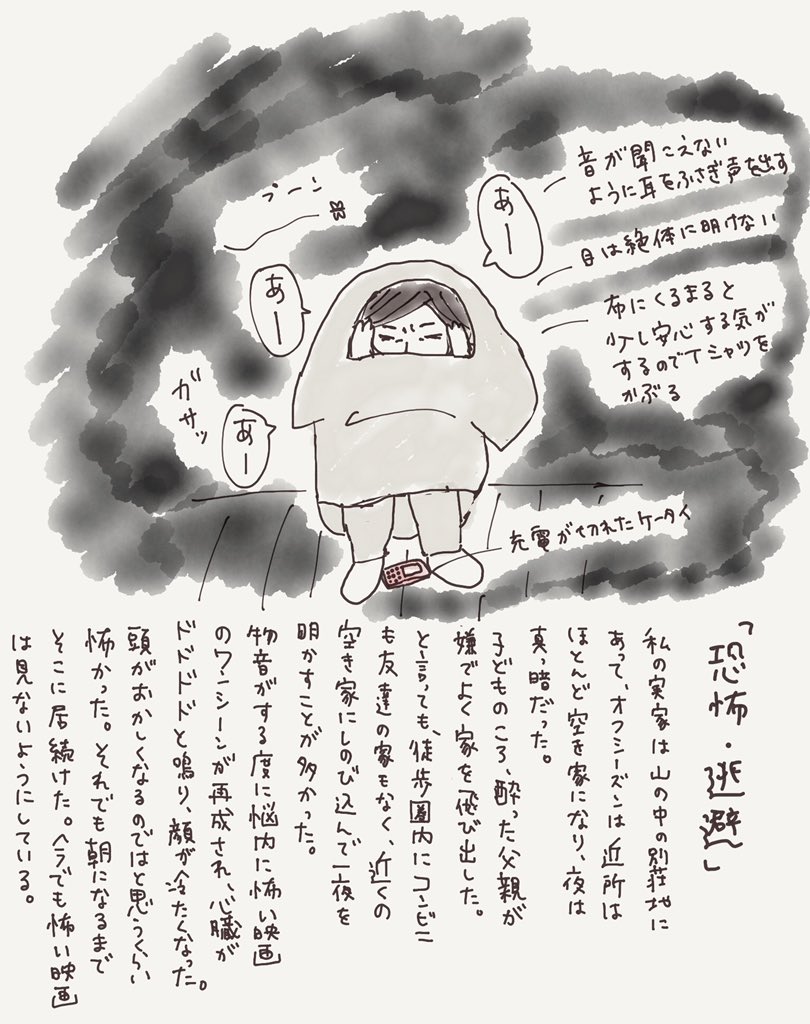 音が聞こえない
ように耳をふさぎ声を出す
目は絶体に明けない
布にくるまると
少し安心する気が
するのでTシャツを
かぶる
プーン
あー
あー
ガサッ
あー
充電が切れたケータイ
「恐怖・逃避」
私の実家は山の中の別荘地に
あって、オフシーズンは近所は
ほとんど空き家になり、夜は
真っ暗だった。
子どものころ、酔った父親が
嫌でよく家を飛び出した。
と言っても、徒歩圏内にコンビニ
も友達の家もなく、近くの
空き家にしのび込んで一夜を
明かすことが多かった。
物音がする度に悩内に怖い映画
のワンシーンが再成され、心臓が
ドドドドと鳴り、顔が冷たくなった。
頭がおかしくなるのではと思うくらい
怖かった。それでも朝になるまで
そこに居続けた。今でも怖い映画
は見ないようにしている。